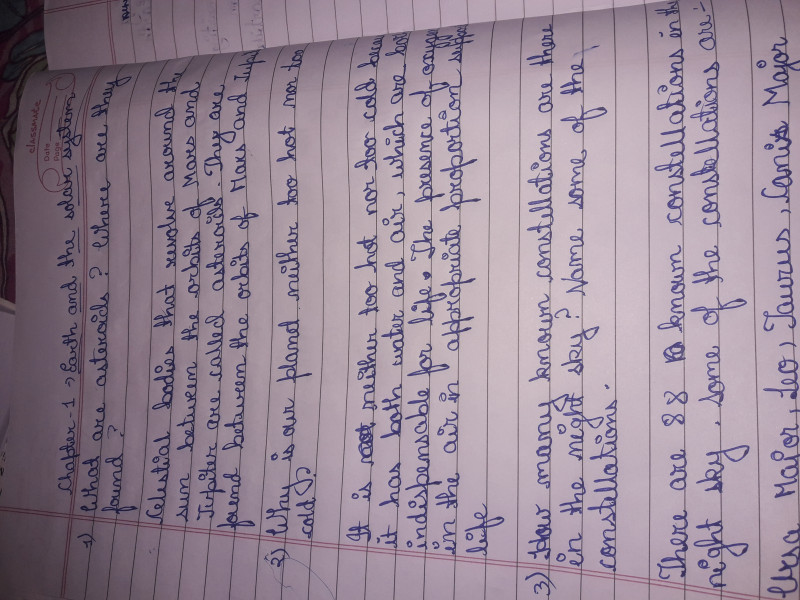 classmate
Date
Page
Chapter 1, Earth and the solar system
1) What are asteroids? Where are they
found?
Celestial bodies that revolve around the
sun between the orbits of Mars and
Jupiter are called asteroids. They are
found between the orbits of Mars and Jupi
2) Why is our planet neither too hot nor too
cold?
It is neither too hot nor too cold here
it has both water and air, which are
indispensable for life. The presence of oxyge
in the air in appropriate proportion suppo
life
3) How many known constellations are there
in the night sky? Name some of the
constellations.
There are 88 known constellations in the
night sky. Some of the constellations are:-
Ursa Major, Leo, Taurus, Canis Major